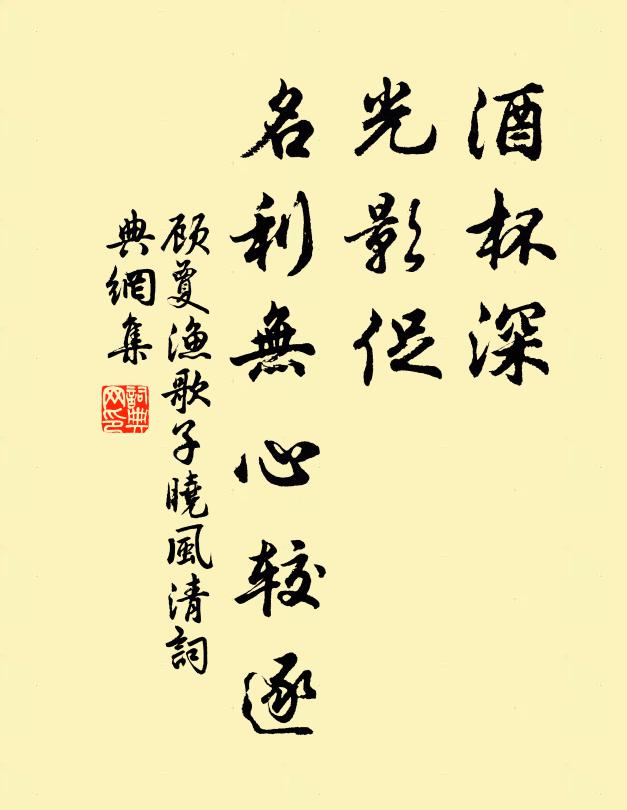 酒杯深
光影促
名利無心较逐
顾敻渔歌子曉風清詞
典網集
詞典网印